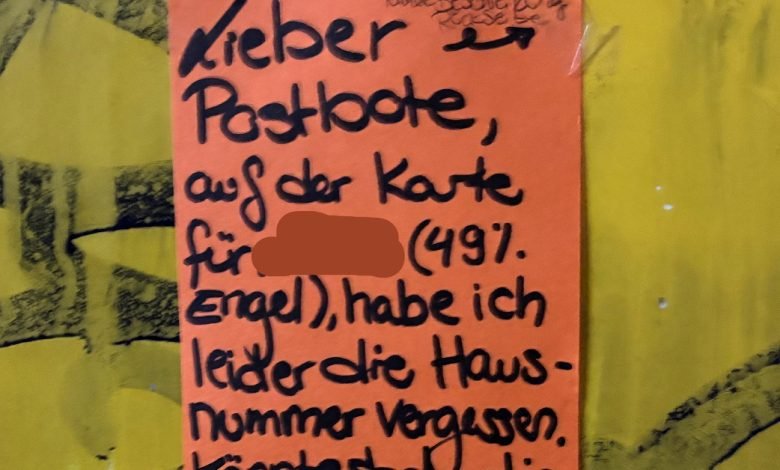 Lieber
Postbote,
auf der Karte
für (49%
Engel), habe ich
leider die Haus-
nummer vergessen.